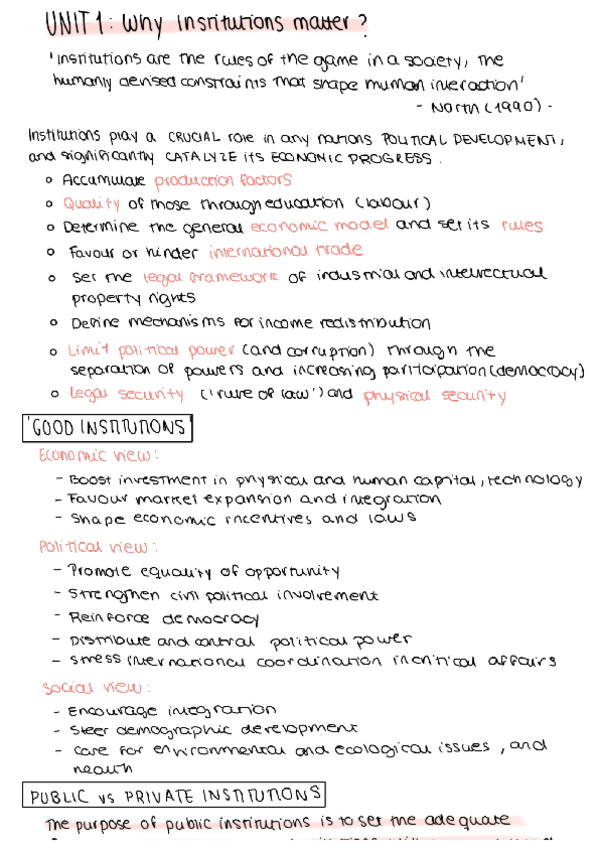 UNIT 1: Why Institutions matter?
'Institutions are the rules of the game in a society, the
humanly devised constraints that shape human interaction'
- North (1990) -
Institutions play a CRUCIAL role in any nations POLITICAL DEVELOPMENT,
and significantly CATALYZE its ECONOMIC PROGRESS.
○ Accumulate production factors
○ Quality of those through education (labour)
○ Determine the general economic model and set its rules
○ Favour or hinder international trade
○ Set the legal framework of industrial and intellectual
property rights
○ Define mechanisms for income redistribution
○ Limit political power (and corruption) through the
separation of powers and increasing participation (democracy)
○ Legal security ('rule of law') and physical security
'GOOD INSTITUTIONS'
Economic view:
- Boost investment in physical and human capital, technology
- Favour market expansion and integration
- Shape economic incentives and laws
Political view:
- Promote equality of opportunity
- Strengthen civil political involvement
- Reinforce democracy
- Distribute and control political power
- Stress international coordination in critical affairs
Social view:
- Encourage integration
- Steer demographic development
- Care for environmental and ecological issues, and
health
PUBLIC vs PRIVATE INSTITUTIONS
The purpose of public institutions is to set the adequate